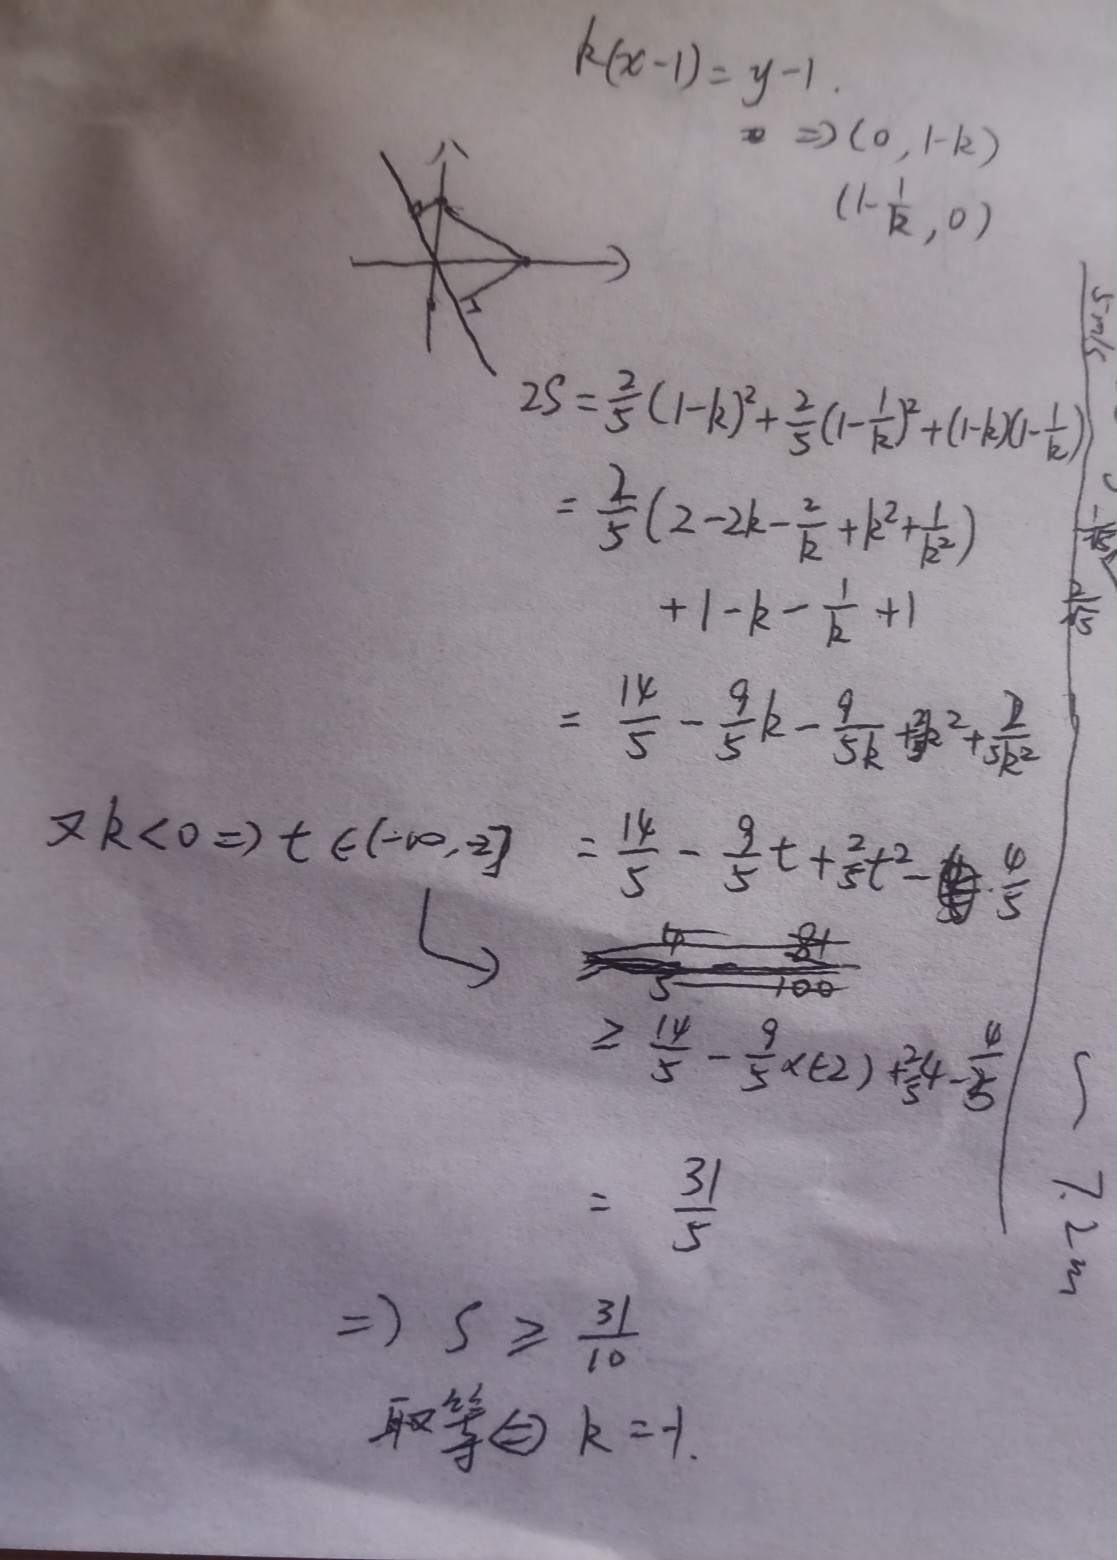 k(x-1)=y-1.
⇒(0,1-k)
(1-1/k,0)
2S=2/5(1-k)²+2/5(1-1/k)²+(1-k)(1-1/k)
=2/5(2-2k-2/k+k²+1/k²)
+1-k-1/k+1
=14/5-9/5k-9/5k+2/5k²+2/5k²
又k<0⇒t∈(-∞,-2]
=14/5-9/5t+2/5t²-4/5
≥14/5-9/5×(-2)+2/5·4-4/5
=31/5
⇒S≥31/10
取等⇔k=-1.
5m/s
2/√5
7.2m